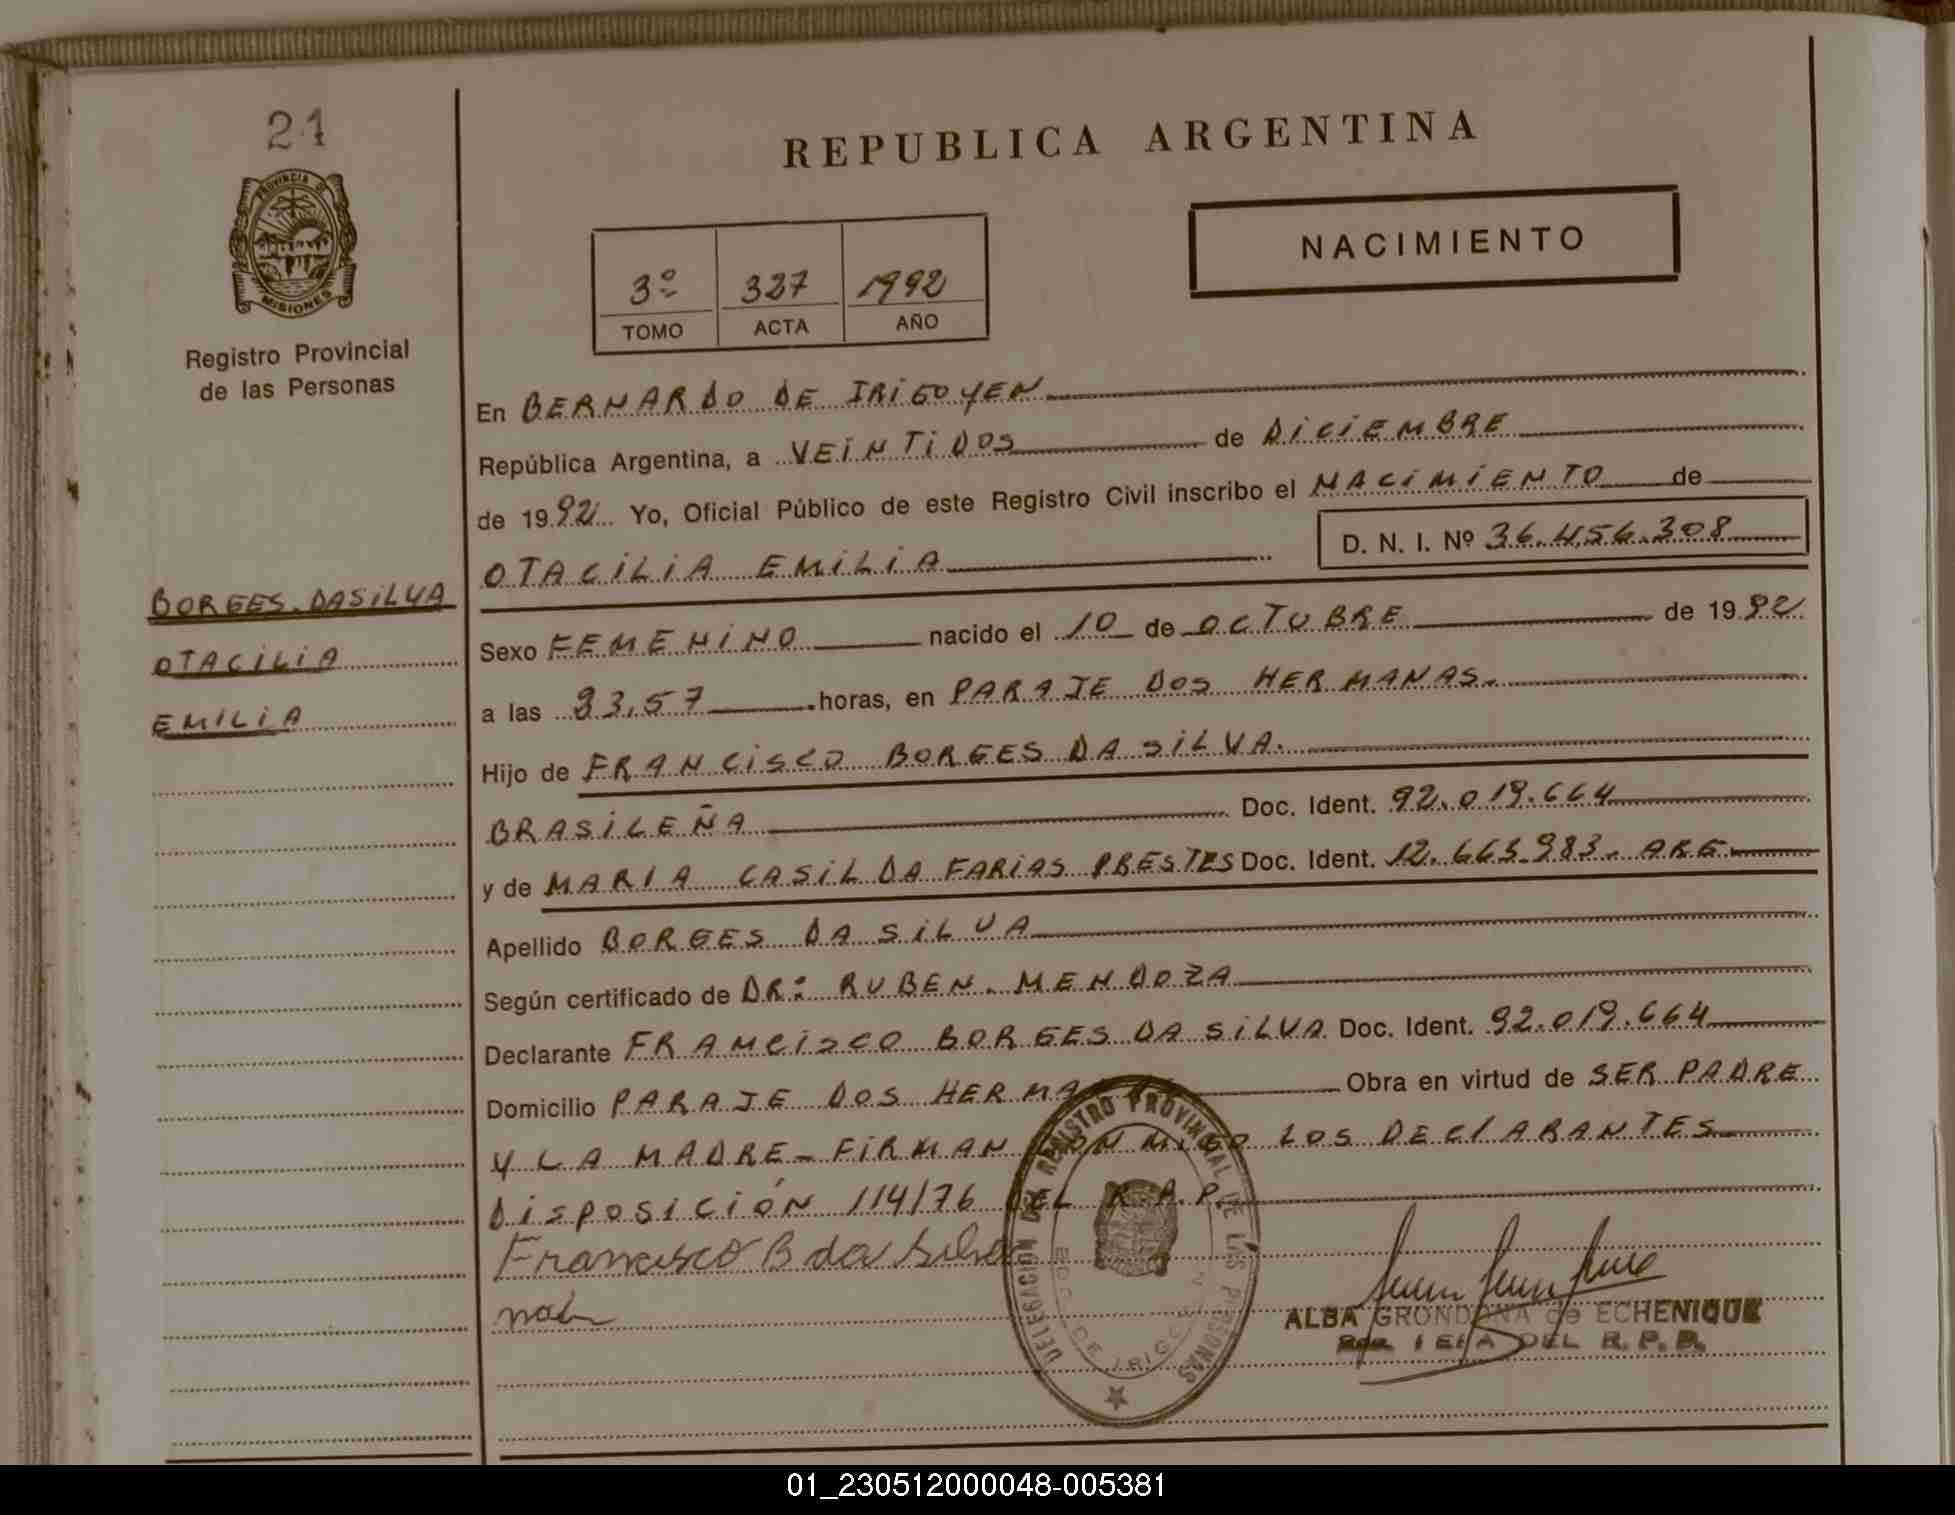 21
PROVINCIA DE
MISIONES
Registro Provincial
de las Personas
REPUBLICA ARGENTINA
NACIMIENTO
3º 327 1992
TOMO ACTA AÑO
En BERNARDO DE IRIGOYEN
República Argentina, a VEINTIDOS de DICIEMBRE
de 1992 Yo, Oficial Público de este Registro Civil inscribo el NACIMIENTO de
OTACILIA EMILIA D. N. I. Nº 36.456.308
BORGES DASILVA
OTACILIA
EMILIA
Sexo FEMENINO nacido el 10 de OCTUBRE de 1992
a las horas, en PARAJE DOS HERMANAS.
Hijo de FRANCISCO BORGES DA SILVA.
BRASILEÑA Doc. Ident. 92.019.664
y de MARIA CASILDA FARIAS PRESTES Doc. Ident. ARG.
Apellido BORGES DA SILVA
Según certificado de DR: RUBEN. MENDOZA
Declarante FRANCISCO BORGES DA SILVA Doc. Ident. 92.019.664
Domicilio PARAJE DOS HERMANAS Obra en virtud de SER PADRE
Y LA MADRE - FIRMAN CONMIGO LOS DECLARANTES
DISPOSICIÓN 114/76 DEL R.P.P.
Francisco B da Silva
DELEGACION DEL REGISTRO PROVINCIAL DE LAS PERSONAS
BDO. DE IRIGOYEN
ALBA GRONDONA de ECHENIQUE
JEFA DEL R.P.P.
01_230512000048-005381